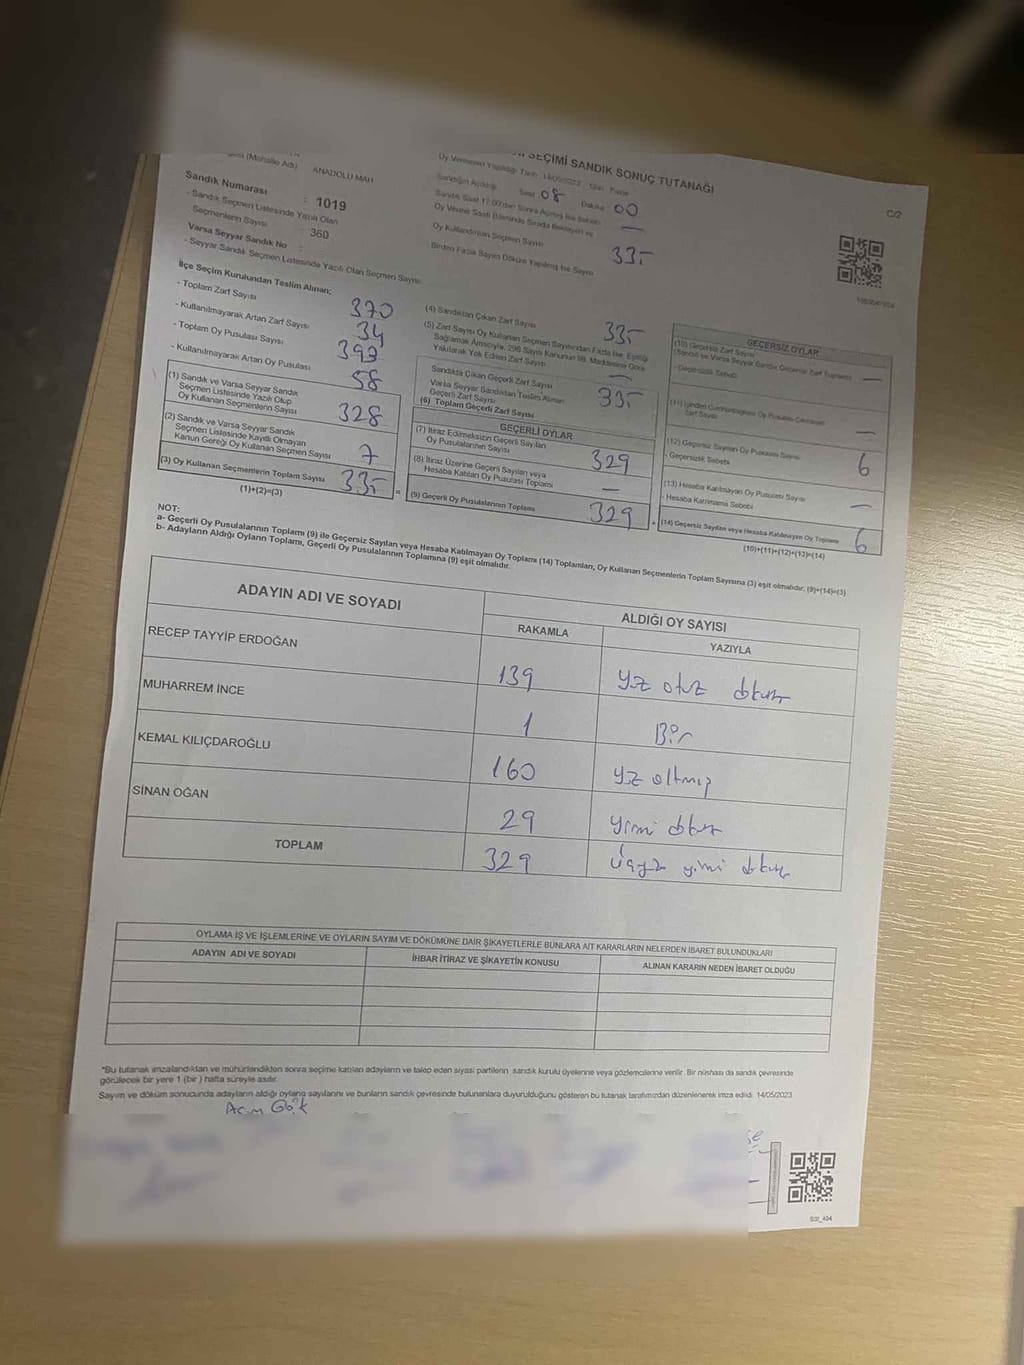 SEÇİMİ SANDIK SONUÇ TUTANAĞI
C/2
(Mahalle Adı) ANADOLU MAH
Sandık Numarası : 1019
- Sandık Seçmen Listesinde Yazılı Olan
Seçmenlerin Sayısı : 360
Varsa Seyyar Sandık No :
- Seyyar Sandık Seçmen Listesinde Yazılı Olan Seçmen Sayısı
Oy Vermenin Yapıldığı Tarih : 14/05/2023
Sandığın Açıldığı Saat 08 Dakika 00
Oy Kullandırılan Seçmen Sayısı 335
Birden Fazla Sayım Döküm Yapılmış İse Sayısı
İlçe Seçim Kurulundan Teslim Alınan;
- Toplam Zarf Sayısı 370
- Kullanılmayarak Artan Zarf Sayısı 34
- Toplam Oy Pusulası Sayısı
- Kullanılmayarak Artan Oy Pusulası 58
(1) Sandık ve Varsa Seyyar Sandık
Seçmen Listesinde Yazılı Olup
Oy Kullanan Seçmenlerin Sayısı 328
(2) Sandık ve Varsa Seyyar Sandık
Seçmen Listesinde Kayıtlı Olmayan
Kanun Gereği Oy Kullanan Seçmen Sayısı 7
(3) Oy Kullanan Seçmenlerin Toplam Sayısı 335
(1)+(2)=(3)
(4) Sandıktan Çıkan Zarf Sayısı 335
(5) Zarf Sayısı Oy Kullanan Seçmen Sayısından Fazla İse, Eşitliği
Sağlamak Amacıyla, 298 Sayılı Kanunun 98. Maddesine Göre
Yakılarak Yok Edilen Zarf Sayısı —
Sandıkta Çıkan Geçerli Zarf Sayısı 335
Varsa Seyyar Sandıktan Teslim Alınan
Geçerli Zarf Sayısı
(6) Toplam Geçerli Zarf Sayısı
GEÇERLİ OYLAR
(7) İtiraz Edilmeksizin Geçerli Sayılan
Oy Pusulalarının Sayısı 329
(8) İtiraz Üzerine Geçerli Sayılan veya
Hesaba Katılan Oy Pusulası Toplamı —
(9) Geçerli Oy Pusulalarının Toplamı 329
GEÇERSİZ OYLAR
(10) Geçersiz Zarf Sayısı
(Sandık ve Varsa Seyyar Sandık Geçersiz Zarf Toplamı) —
- Geçersizlik Sebebi
Zarf Sayısı —
(12) Geçersiz Sayılan Oy Pusulası Sayısı 6
- Geçersizlik Sebebi
(13) Hesaba Katılmayan Oy Pusulası Sayısı —
- Hesaba Katılmama Sebebi
(14) Geçersiz Sayılan veya Hesaba Katılmayan Oy Toplamı 6
(10)+(11)+(12)+(13)=(14)
NOT:
a- Geçerli Oy Pusulalarının Toplamı (9) ile Geçersiz Sayılan veya Hesaba Katılmayan Oy Toplamı (14) Toplamları, Oy Kullanan Seçmenlerin Toplam Sayısına (3) eşit olmalıdır. (9)+(14)=(3)
b- Adayların Aldığı Oyların Toplamı, Geçerli Oy Pusulalarının Toplamına (9) eşit olmalıdır.
ADAYIN ADI VE SOYADI ALDIĞI OY SAYISI
RAKAMLA YAZIYLA
RECEP TAYYİP ERDOĞAN 139 yüz otuz dokuz
MUHARREM İNCE 1 Bir
KEMAL KILIÇDAROĞLU 160 yüz altmış
SİNAN OĞAN 29 yirmi dokuz
TOPLAM 329 üçyüz yirmi dokuz
OYLAMA İŞ VE İŞLEMLERİNE VE OYLARIN SAYIM VE DÖKÜMÜNE DAİR ŞİKAYETLERLE BUNLARA AİT KARARLARIN NELERDEN İBARET BULUNDUKLARI
ADAYIN ADI VE SOYADI İHBAR İTİRAZ VE ŞİKAYETİN KONUSU ALINAN KARARIN NEDEN İBARET OLDUĞU
*Bu tutanak imzalandıktan ve mühürlendikten sonra seçime katılan adayların ve talep eden siyasi partilerin sandık kurulu üyelerine veya gözlemcilerine verilir. Bir nüshası da sandık çevresinde
görülecek bir yere 1 (bir) hafta süreyle asılır.
Sayım ve döküm sonucunda adayların aldığı oyların sayılarını ve bunların sandık çevresinde bulunanlara duyurulduğunu gösteren bu tutanak tarafımızdan düzenlenerek imza edildi. 14/05/2023